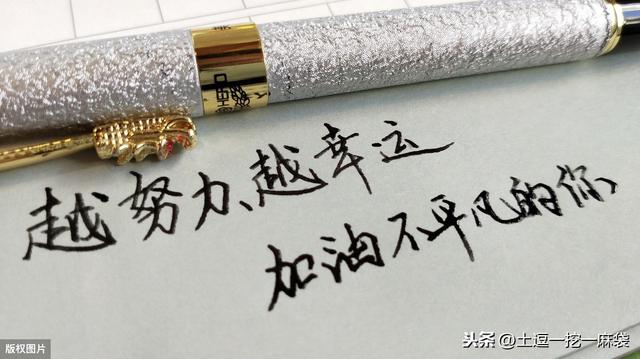 越努力、越幸运
加油不平凡的你、
版权图片
头条@土逗一挖一麻袋